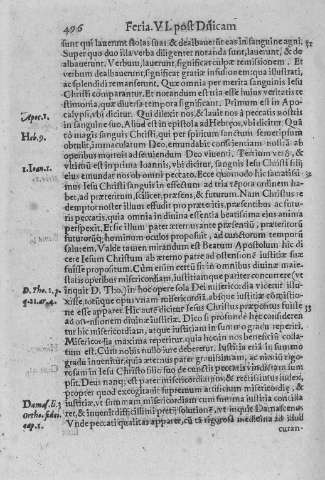 496 Feria. VI. post Dñicam
sunt qui lauerunt stolas suas & dealbauerunt eas in sanguine agni.
Super quo duo illa verba diligenter notanda sunt, lauerunt, & de
albauerunt. Verbum, lauerunt, significat culpæ remissionem. Et
verbum dealbauerunt, significat gratiæ infusionem qua illustrati,
ac splendidi remanserunt. Quæ omnia per merita sanguinis Iesu
Christi comparantur. Et notanda est tria esse huius veritatis te
stimonia, quæ diuersa tempora significant. Primum est in Apo-
Apoc. 1. calypsi, vbi dicitur. Qui dilexit nos, & lauit nos à peccatis nostris
in sanguine suo. Aliud est in epistola ad Hebræos, vbi dicitur. Quā
Heb. 9. tò magis sanguis Christi, qui per spiritum sanctum semetipsum
obtulit, immaculatum Deo, emundabit conscientiam nostrā ab
operibus mortuis ad seruiendum Deo viuenti. Tertium verò, &
1. Ioan. 1. vltimū est in prima Ioannis, vbi dicitur, sanguis Iesu Christi filij
eius emundat nos ab omni peccato. Ecce quomodo hic sanctissi-
mus Iesu Christi sanguis in effectum ad tria tēpora ordinem ha-
bet, ad præteritum, scilicet, præsens, & futurum. Nam Christus re
demptor noster illum effudit pro præteritis, præsentibus ac futu-
ris peccatis, quia omnia in diuina essentia beatissima eius anima
perspexit. Et sic illum pater æternus ante præsentiū, præteritorū
futurorūq; hominum oculos proposuit, ad cunctorum temporū
salutem. Valde tamen mirandum est Beatum Apostolum hic di
cere Iesum Christum ab æterno patre ad ostensionē iustitiæ suæ
fuisse propositum. Cùm enim certū sit in omnibus diuinæ maie-
statis operibus misericordiam, iustitiamque pariter concurrere (vt
D. Tho. 1. p. inquit D. Tho.) in hoc opere sola Dei misericordia vicerit illu-
q. 21. ar. 4. xisse, totūque opus vnam misericordiā, absque iustitiæ cōmistio-
ne esse apparet. Hic autē dicitur Iesus Christus propositus fuisse
ad ostensionem diuinæ iustitiæ. Dico si profundè hæc considerē
tur hic misericordiam, atque iustitiam in summo gradu reperiri.
Misericordia maxima reperitur, quia homini non beneficiū colla-
tum est. Cùm nobis nullo iure deberetur. Iustitia etiā in summo
gradu inuenitur, quia æternus pater grauissimam, ac nimiū rigo-
rosam in Iesu Christo filio suo de cunctis peccatis vindictam sum
psit. Deus namq; est pater misericordiarum, & rectissimus iudex,
propter quod excogitauit supremum artificium misericordiæ, &
Damas. li. 3 iustitiæ, vt summam misericordiam cum summa iustitia concilia
Ortho. fidei ret, & inuenit difficillimi pretij solutionē, vt inquit Damascenus.
cap. 1. Vnde peccati qualitas apparet, cū tā rigorosa medicina ad illud
curan-